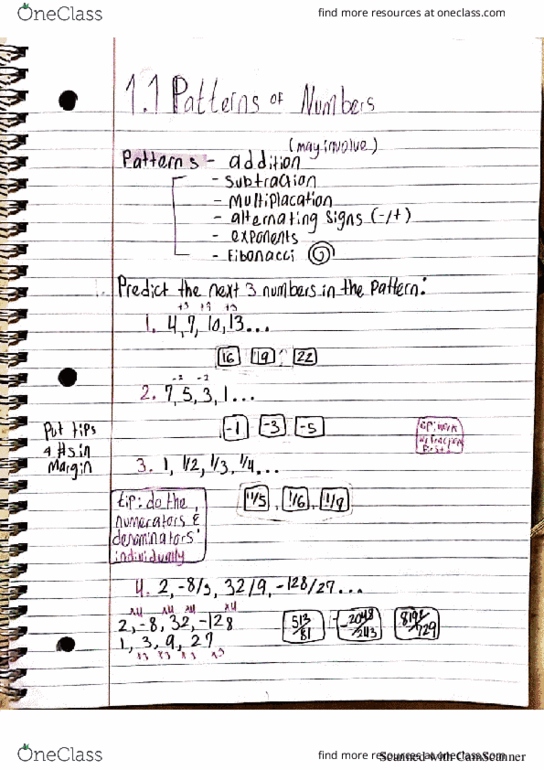 OneClass
find more resources at oneclass.com
1.1 Patterns of Numbers
(may involve)
Patterns - addition
- Subtraction
- Multiplacation
- alternating signs (-/+)
- exponents
- Fibonacci
Predict the next 3 numbers in the Pattern:
+3 +3 +3
1. 4, 7, 10, 13...
16 19 22
-2 -2
2. 7, 5, 3, 1...
-1 -3 -5
Put tips
& #s in
Margin
3. 1, 1/2, 1/3, 1/4...
tip: do the
numerators &
denominators
individually
1/5, 1/6, 1/8
4. 2, -8/3, 32/9, -128/27...
x4 x4 x4 x4
2, -8, 32, -128
513/81 -2048/243 8192/729
1, 3, 9, 27
x3 x3 x3 x3
OneClass
find more resources at oneclass.com
Scanned with CamScanner